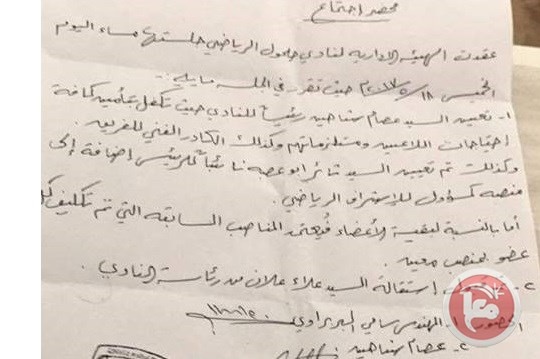 محضر اجتماع
عقدت الهيئة الادارية لنادي حلحول الرياضي جلستها مساء اليوم
الخميس ١٨/٥/٢٠١٧ حيث تقرر في الجلسة ما يلي:-
١- تعيين السيد عصام شاهين رئيساً للنادي حيث تكفل بتأمين كافة
احتياجات اللاعبين ومستلزماتهم وكذلك الكادر الفني للفريق.
وكذلك تم تعيين السيد ثائر ابو عصبه نائباً للرئيس إضافة إلى
منصبه كمسؤول للإحتراف الرياضي.
أما بالنسبة لبقية الأعضاء فيعتمد المناصب السابقة التي تم تكليف كل
عضو بمنصب معين.
٢- قبول إستقالة السيد علاء علان من رئاسة النادي.
الحضور ١- المهندس سامي البربراوي
٢- عصام شاهين
معا